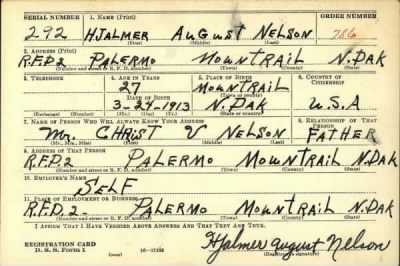 SERIAL NUMBER 1. NAME (Print) ORDER NUMBER
292 HJALMER AUGUST NELSON 786
(First) (Middle) (Last)
2. ADDRESS (Print)
R.F.D.2 PALERMO MOUNTRAIL N.DAK
(Number and street or R. F. D. number) (Town) (County) (State)
3. TELEPHONE 4. AGE IN YEARS 5. PLACE OF BIRTH 6. COUNTRY OF CITIZENSHIP
27 MOUNTRAIL
DATE OF BIRTH (Town or county)
3-24-1913 N.DAK U.S.A
(Exchange) (Number) (Mo.) (Day) (Yr.) (State or country)
7. NAME OF PERSON WHO WILL ALWAYS KNOW YOUR ADDRESS 8. RELATIONSHIP OF THAT PERSON
Mr. CHRIST V NELSON FATHER
(Mr., Mrs., Miss) (First) (Middle) (Last)
9. ADDRESS OF THAT PERSON
R.F.D.2 PALERMO MOUNTRAIL N.DAK
(Number and street or R. F. D. number) (Town) (County) (State)
10. EMPLOYER'S NAME
SELF
11. PLACE OF EMPLOYMENT OR BUSINESS
R.F.D.2- PALERMO MOUNTRAIL N.DAK
(Number and street or R. F. D. number) (Town) (County) (State)
I AFFIRM THAT I HAVE VERIFIED ABOVE ANSWERS AND THAT THEY ARE TRUE.
REGISTRATION CARD
D. S. S. Form 1 16-17105 Hjalmer August Nelson